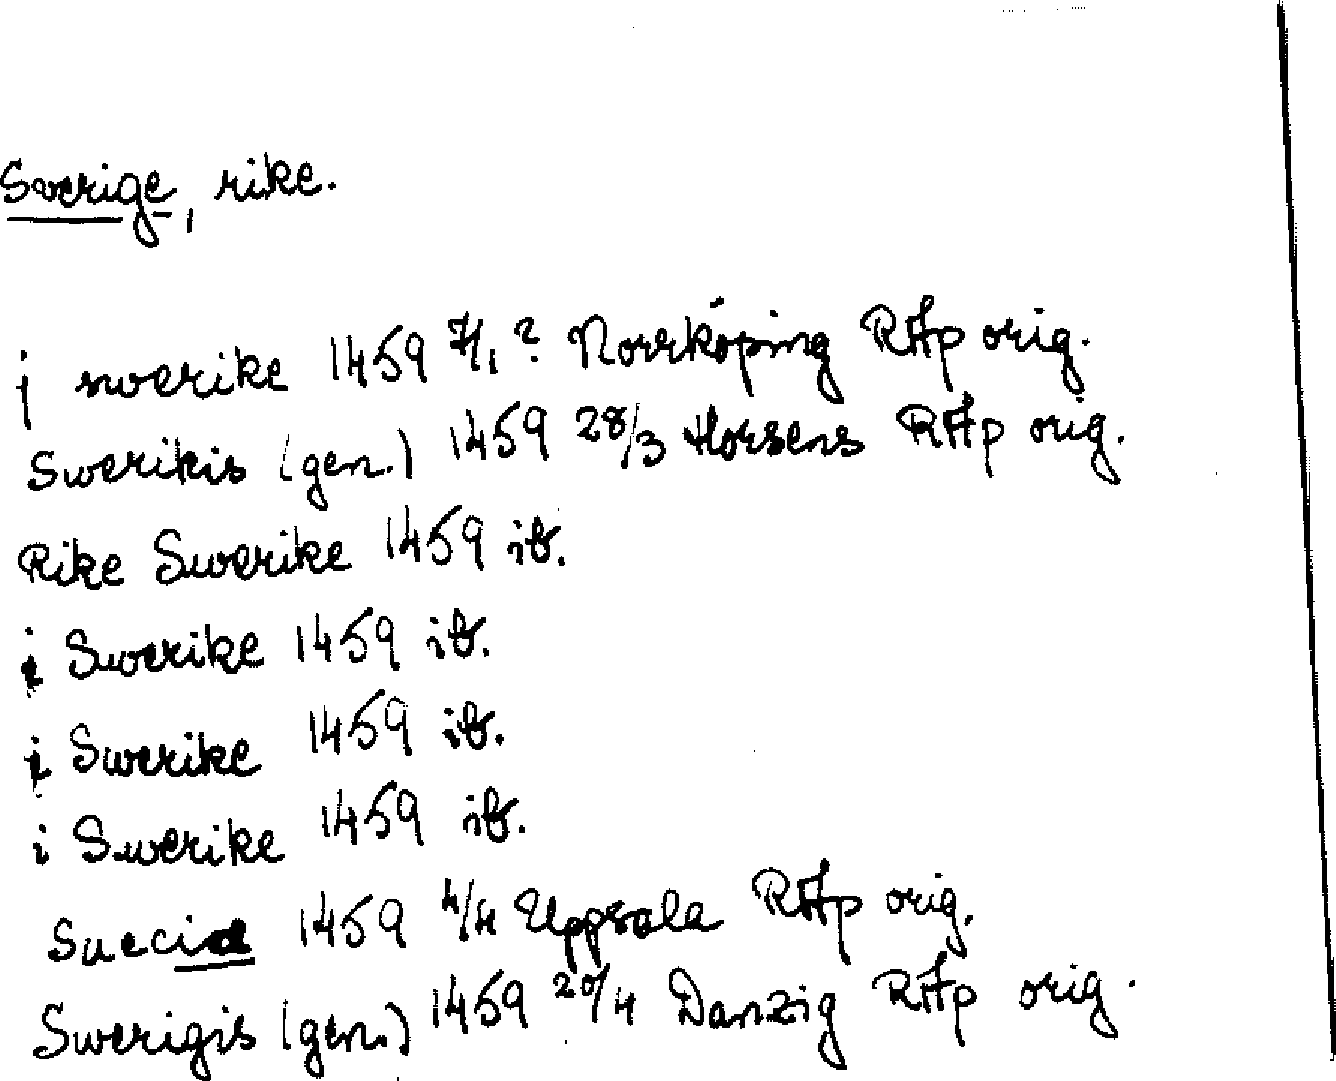 Sverige, rike.
j swerike 1459 7/1? Norrköping RAp orig.
Swerikis (gen.) 1459 28/3 Horsens RAp orig.
Rike Swerike 1459 ib.
i Swerike 1459 ib.
i Swerike 1459 ib.
i Swerike 1459 ib.
Suecia 1459 4/4 Uppsala RAp orig.
Swerigis (gen.) 1459 20/4 Danzig RAp orig.